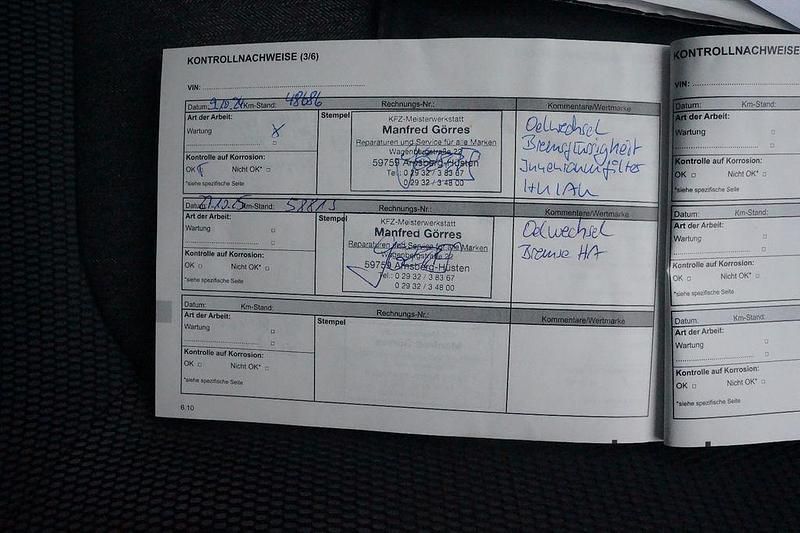 KONTROLLNACHWEISE (3/6)
VIN:
Datum: 9.10.24 Km-Stand: 48686 Rechnungs-Nr.: Kommentare/Wertmarke
Art der Arbeit: Stempel
Wartung X
KFZ-Meisterwerkstatt
Manfred Görres
Reparaturen und Service für alle Marken
Wagenbergstraße 22
59759 Arnsberg-Hüsten
Tel.: 0 29 32 / 3 83 67
0 29 32 / 3 48 00
Kontrolle auf Korrosion:
OK Nicht OK*
*siehe spezifische Seite
Oelwechsel
Bremsflüssigkeit
Innenraumfilter
Datum: Km-Stand: Rechnungs-Nr.: Kommentare/Wertmarke
Art der Arbeit: Stempel
Wartung
KFZ-Meisterwerkstatt
Manfred Görres
Reparaturen und Service für alle Marken
Wagenbergstraße 22
59759 Arnsberg-Hüsten
Tel.: 0 29 32 / 3 83 67
0 29 32 / 3 48 00
Kontrolle auf Korrosion:
OK Nicht OK*
*siehe spezifische Seite
Oelwechsel
Bremse HA
Datum: Km-Stand: Rechnungs-Nr.: Kommentare/Wertmarke
Art der Arbeit: Stempel
Wartung
Kontrolle auf Korrosion:
OK Nicht OK*
*siehe spezifische Seite
6.10
KONTROLLNACHWEISE
VIN:
Datum: Km-Stand:
Art der Arbeit:
Wartung
Kontrolle auf Korrosion:
OK Nicht OK*
*siehe spezifische Seite
Datum: Km-Stand:
Art der Arbeit:
Wartung
Kontrolle auf Korrosion:
OK Nicht OK*
*siehe spezifische Seite
Datum: Km-Stand:
Art der Arbeit:
Wartung
Kontrolle auf Korrosion:
OK Nicht OK*
*siehe spezifische Seite